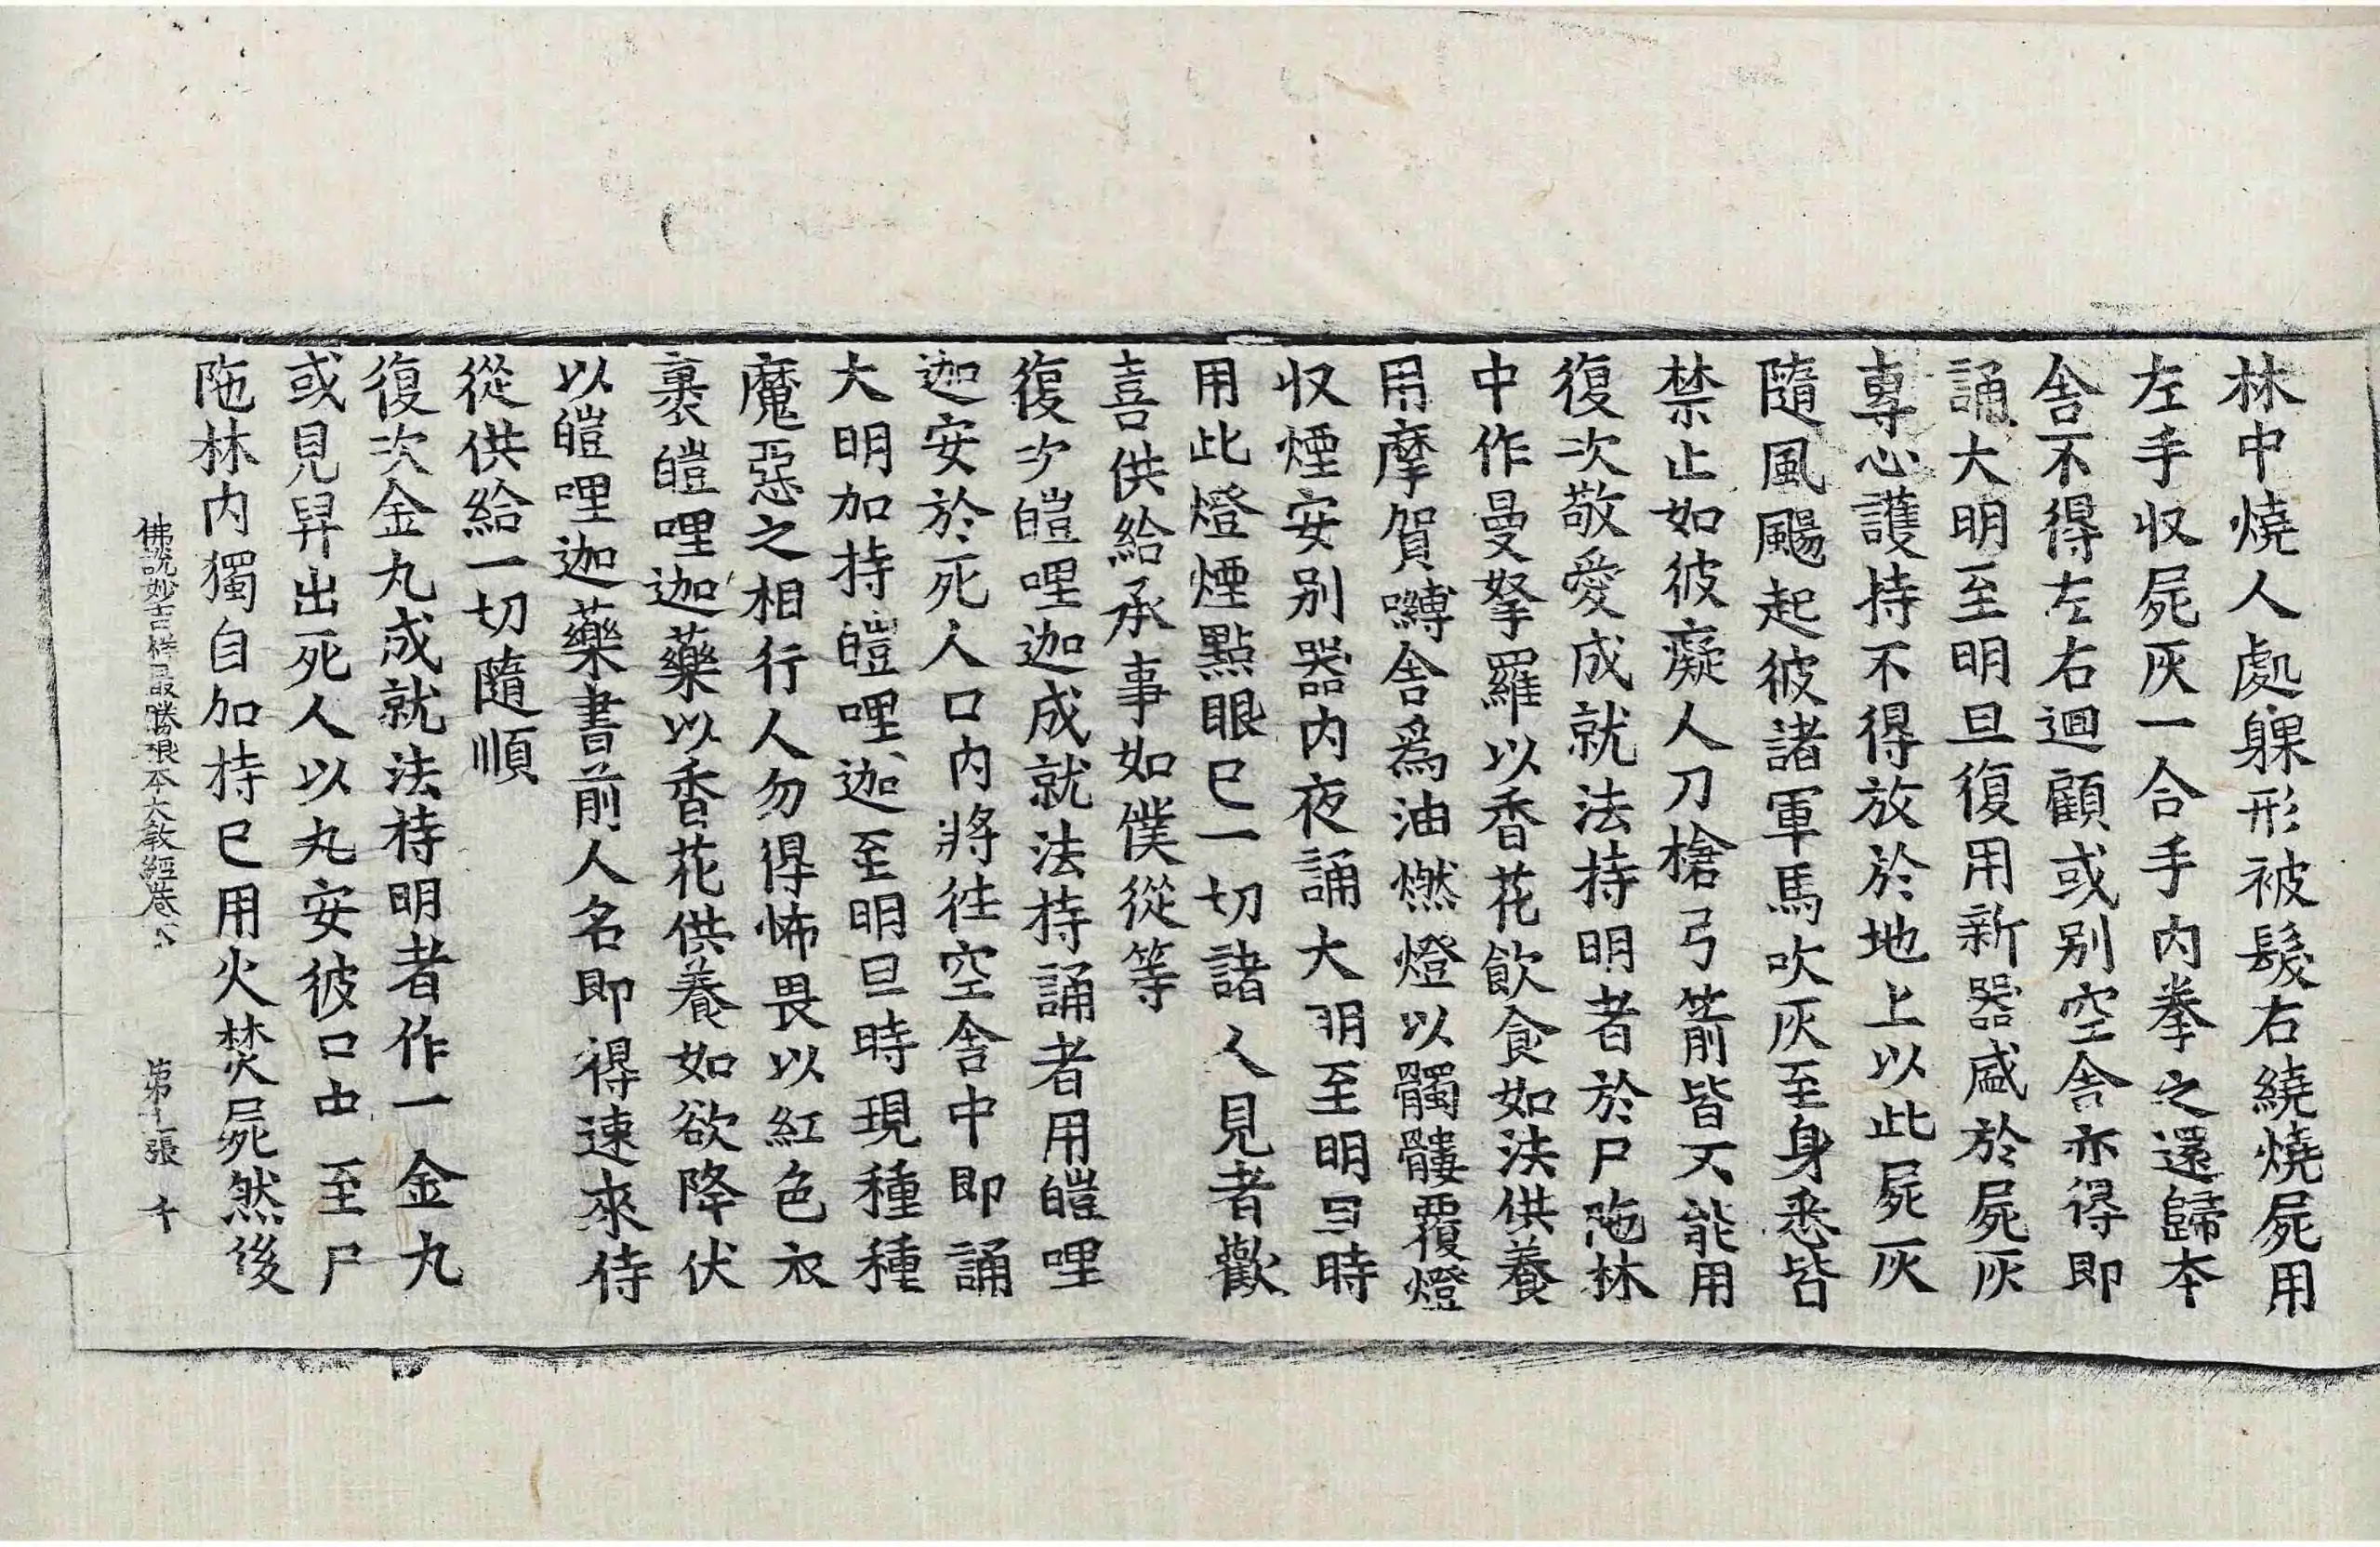 林中燒人處躶形被髮右繞燒屍用
左手収屍灰一合手內拳之還歸本
舎不得左右迴顧或别空舎亦得即
誦大明至明旦復用新器盛於屍灰
專心護持不得放於地上以此屍灰
隨風颺起彼諸軍馬吹灰至身悉皆
禁止如彼癡人刀槍弓箭皆不能用
復次敬愛成就法持明者於尸陁林
中作曼拏羅以香花飲食如法供養
用摩賀嚩舎爲油燃燈以髑髏覆燈
収煙安别器内夜誦大明至明旦時
用此燈煙點眼已一切諸人見者歡
喜供給承事如僕從等
復次皚哩迦成就法持誦者用皚哩
迦安於死人口内將往空舎中即誦
大明加持皚哩迦至明旦時現種種
魔惡之相行人勿得怖畏以紅色衣
裹皚哩迦藥以香花供養如欲降伏
以皚哩迦藥書前人名即得速來侍
從供給一切隨順
復次金丸成就法持明者作一金丸
或見舁出死人以丸安彼口中至尸
陁林内獨自加持已用火焚屍然後
佛說妙吉祥最勝根本大教經卷下 第十張 千